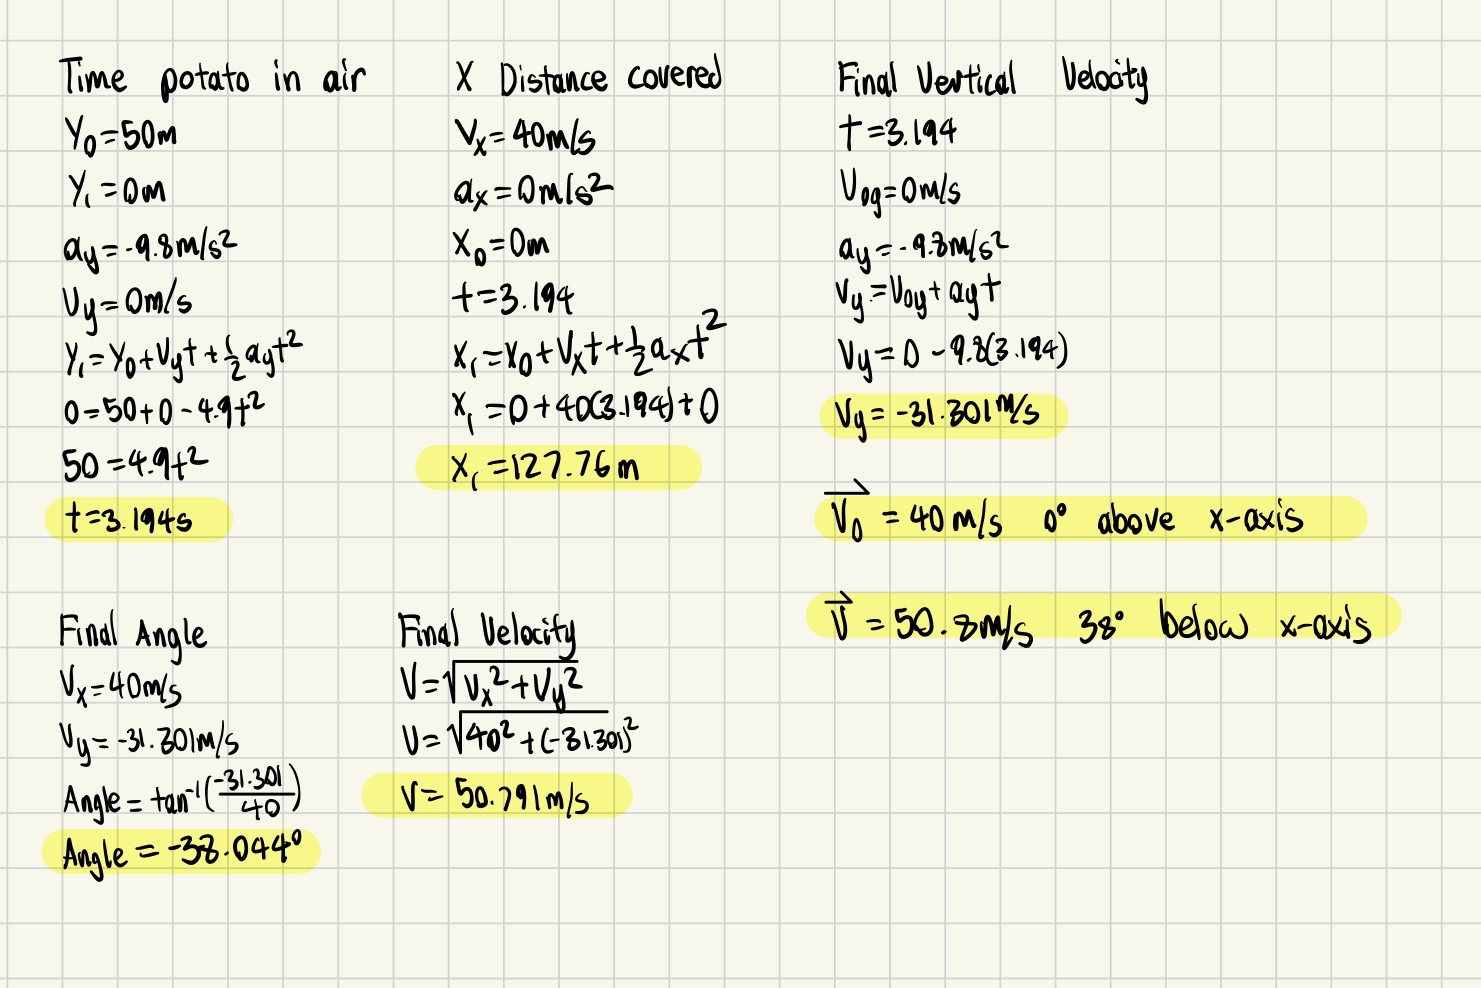 Time potato in air
Y₀=50m
Y₁=0m
ay=-9.8m/s²
Vy=0m/s
Y₁=Y₀+Vyt+½ayt²
0=50+0-4.9t²
50=4.9t²
t=3.194s
X Distance covered
Vx=40m/s
ax=0m/s²
X₀=0m
t=3.194
X₁=X₀+Vxt+½axt²
X₁=0+40(3.194)+0
X₁=127.76m
Final Vertical Velocity
t=3.194
V₀y=0m/s
ay=-9.8m/s²
Vy=V₀y+ayt
Vy=0-9.8(3.194)
Vy=-31.301m/s
V⃗₀=40m/s 0° above x-axis
V⃗=50.8m/s 38° below x-axis
Final Angle
Vx=40m/s
Vy=-31.301m/s
Angle=tan⁻¹(-31.301/40)
Angle=-38.044°
Final Velocity
V=√(Vx²+Vy²)
V=√(40²+(-31.301)²)
V=50.791m/s